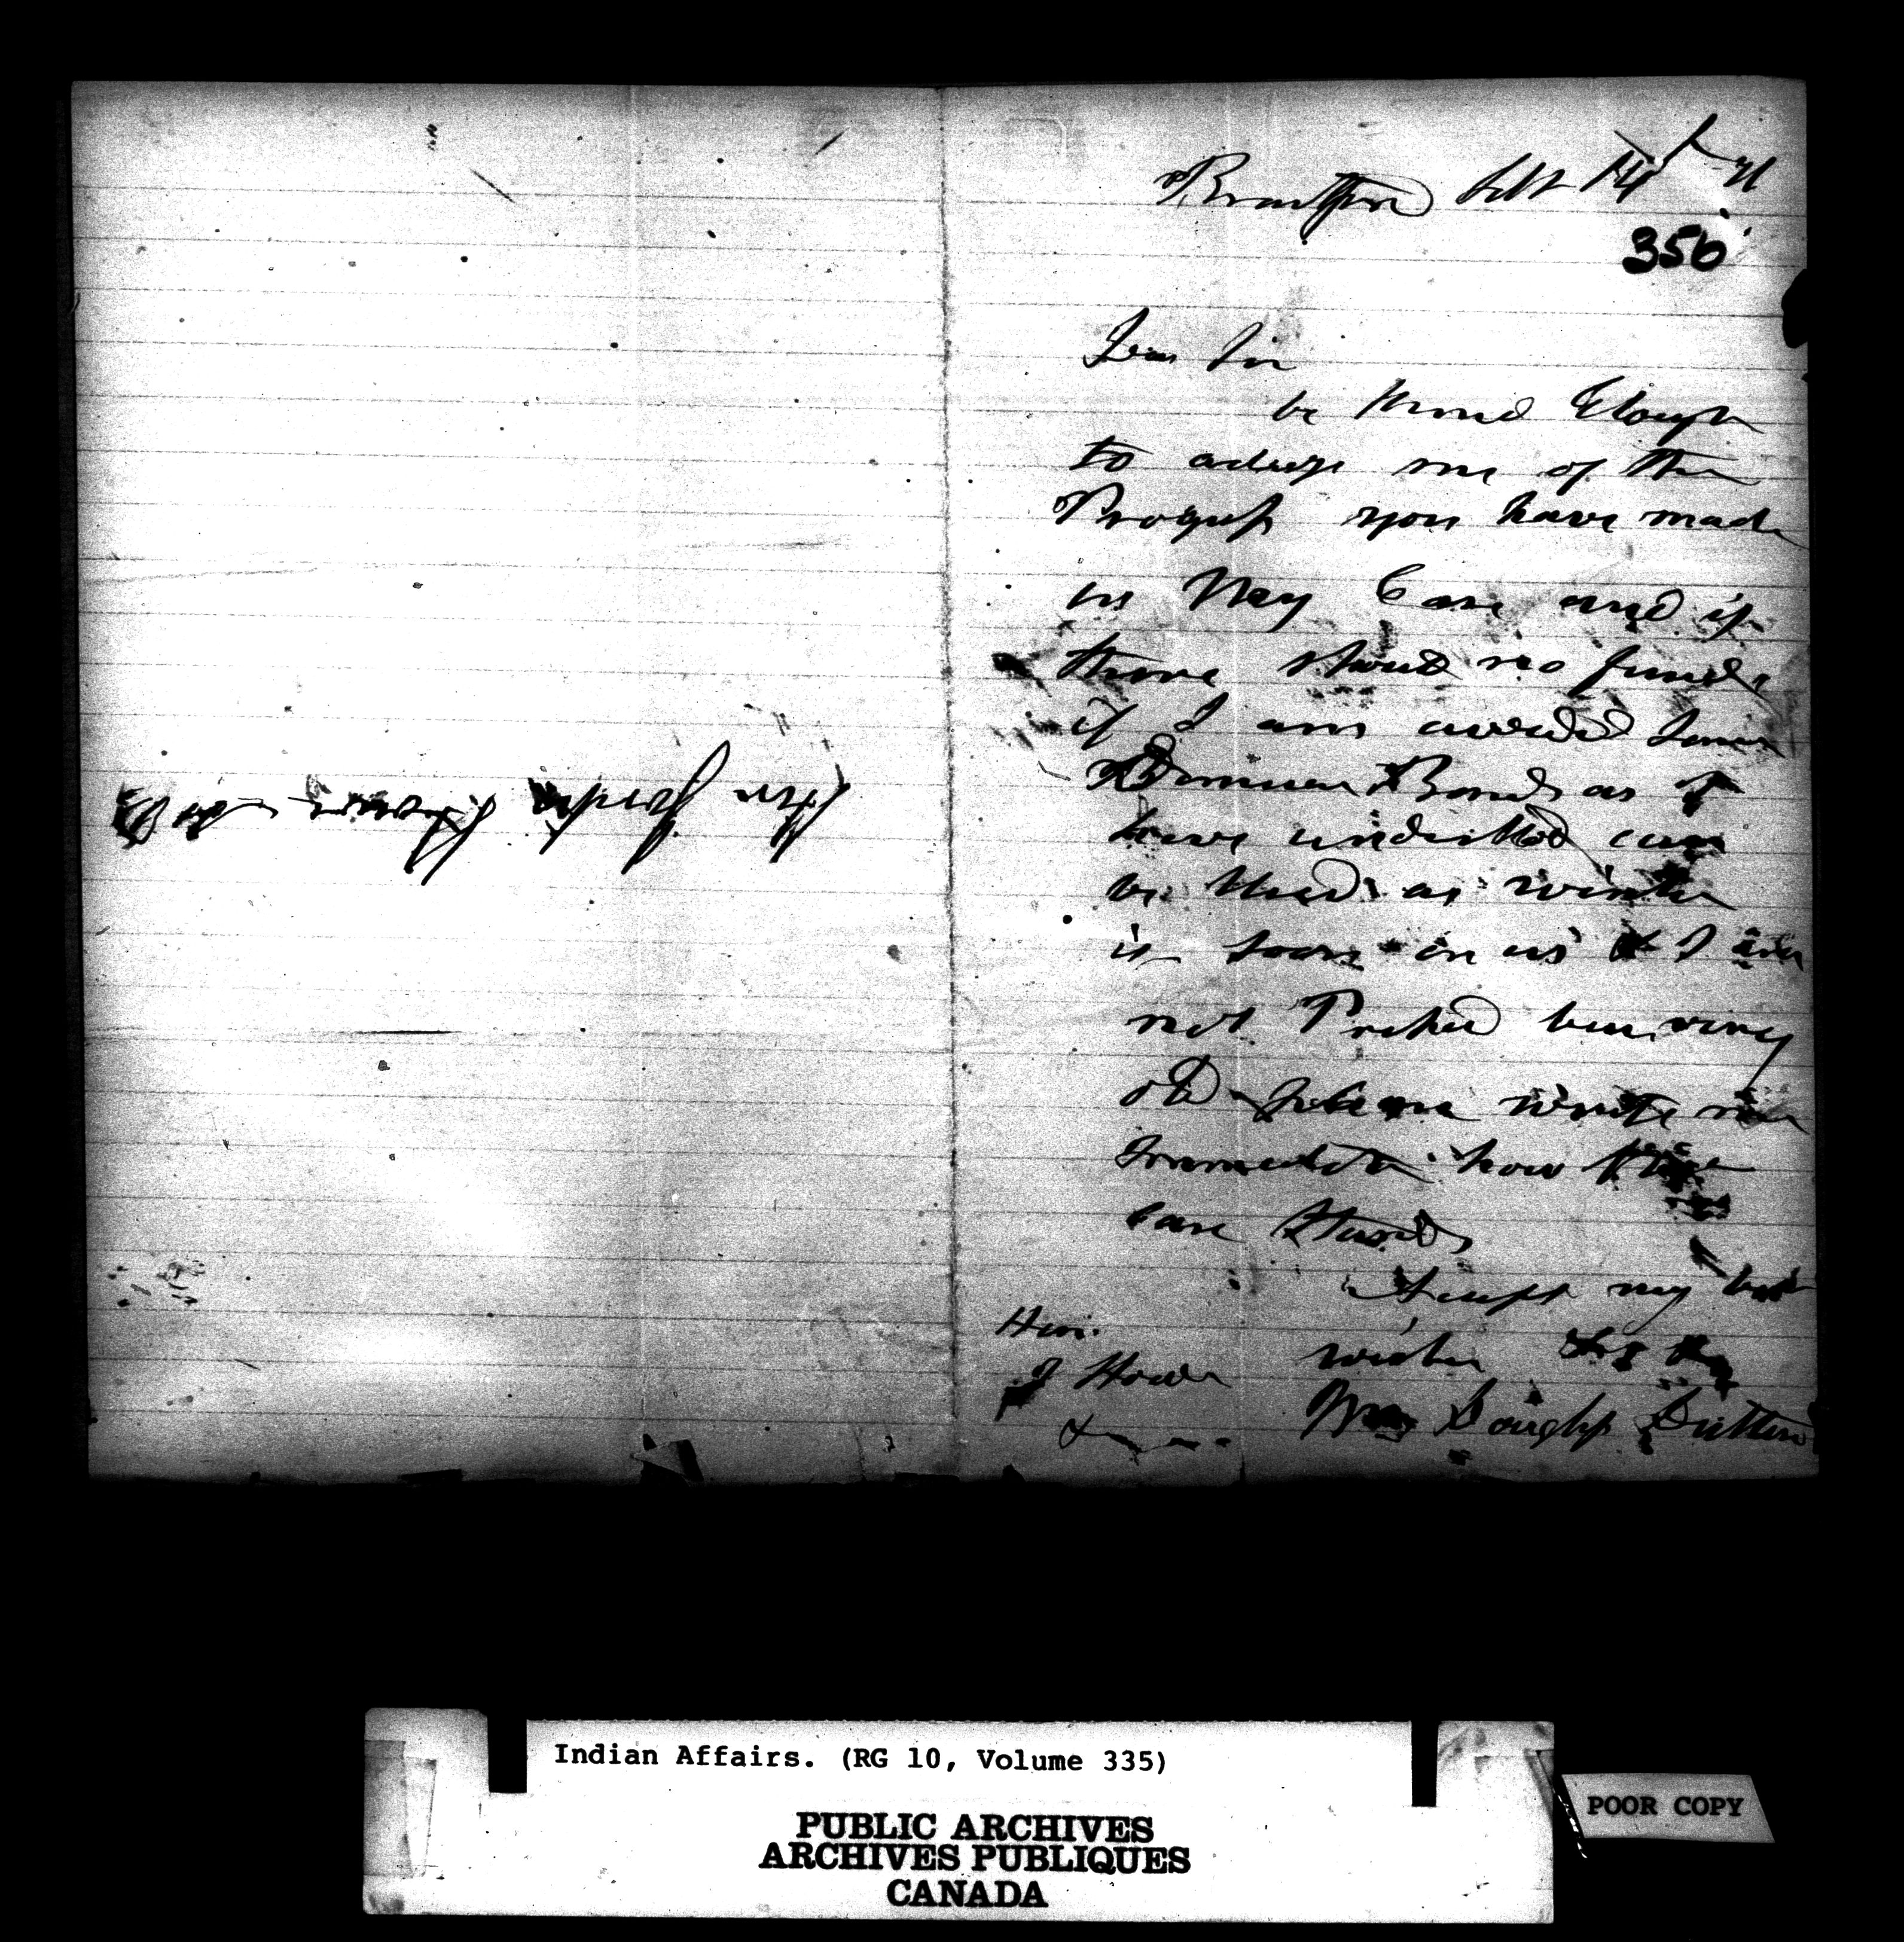 Brantford 14 71
356
Dear Sir
be kind Enough
to advise me of the
Progress you have made
in My Case and if
there should no funds
if I am awarded Some
Dominion Bonds as I
have understood can
be Used as winter
is soon on us & I am
not Prepared being very
old please write me
Immediately how the
Case Stands
Accept my best
wishes
Hon.
J Howe
Wm Douglas Dutton
Hon Joseph Howe
Indian Affairs. (RG 10, Volume 335)
PUBLIC ARCHIVES
ARCHIVES PUBLIQUES
CANADA
POOR COPY